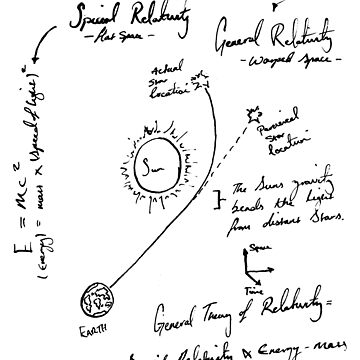 Special Relativity
- Flat Space -
General Relativity
- Warped Space -
E = mc²
(Energy) = mass x (speed of light)²
Actual
Star
Location
Perceived
Star
Location
Sun
The Suns gravity
bends the light
from distant Stars.
Space
Time
EARTH
General Theory of Relativity =
Special Relativity x Energy - mass